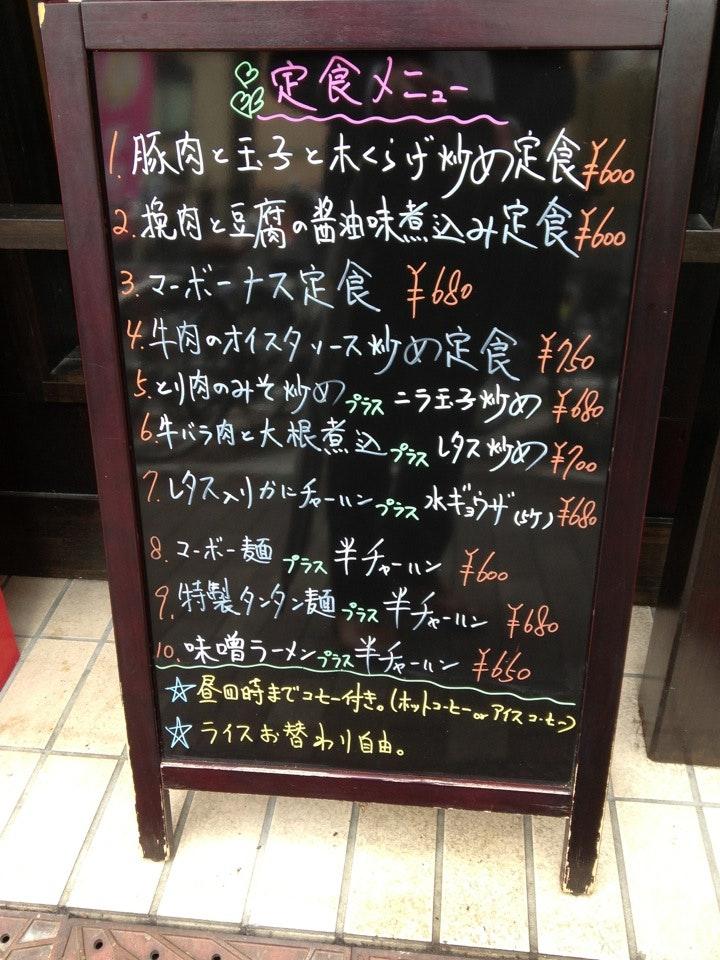 定食メニュー
1. 豚肉と玉子と木くらげ炒め定食 ¥600
2. 挽肉と豆腐の醤油味煮込み定食 ¥600
3. マーボーナス定食 ¥680
4. 牛肉のオイスタソース炒め定食 ¥750
5. とり肉のみそ炒めプラスニラ玉子炒め ¥680
6. 牛バラ肉と大根煮込プラスレタス炒め ¥700
7. レタス入りかにチャーハンプラス水ギョウザ(5ケ) ¥680
8. マーボー麺プラス半チャーハン ¥600
9. 特製タンタン麺プラス半チャーハン ¥680
10. 味噌ラーメンプラス半チャーハン ¥650
☆昼四時までコーヒー付き。(ホットコーヒー or アイスコーヒー)
☆ライスお替わり自由。